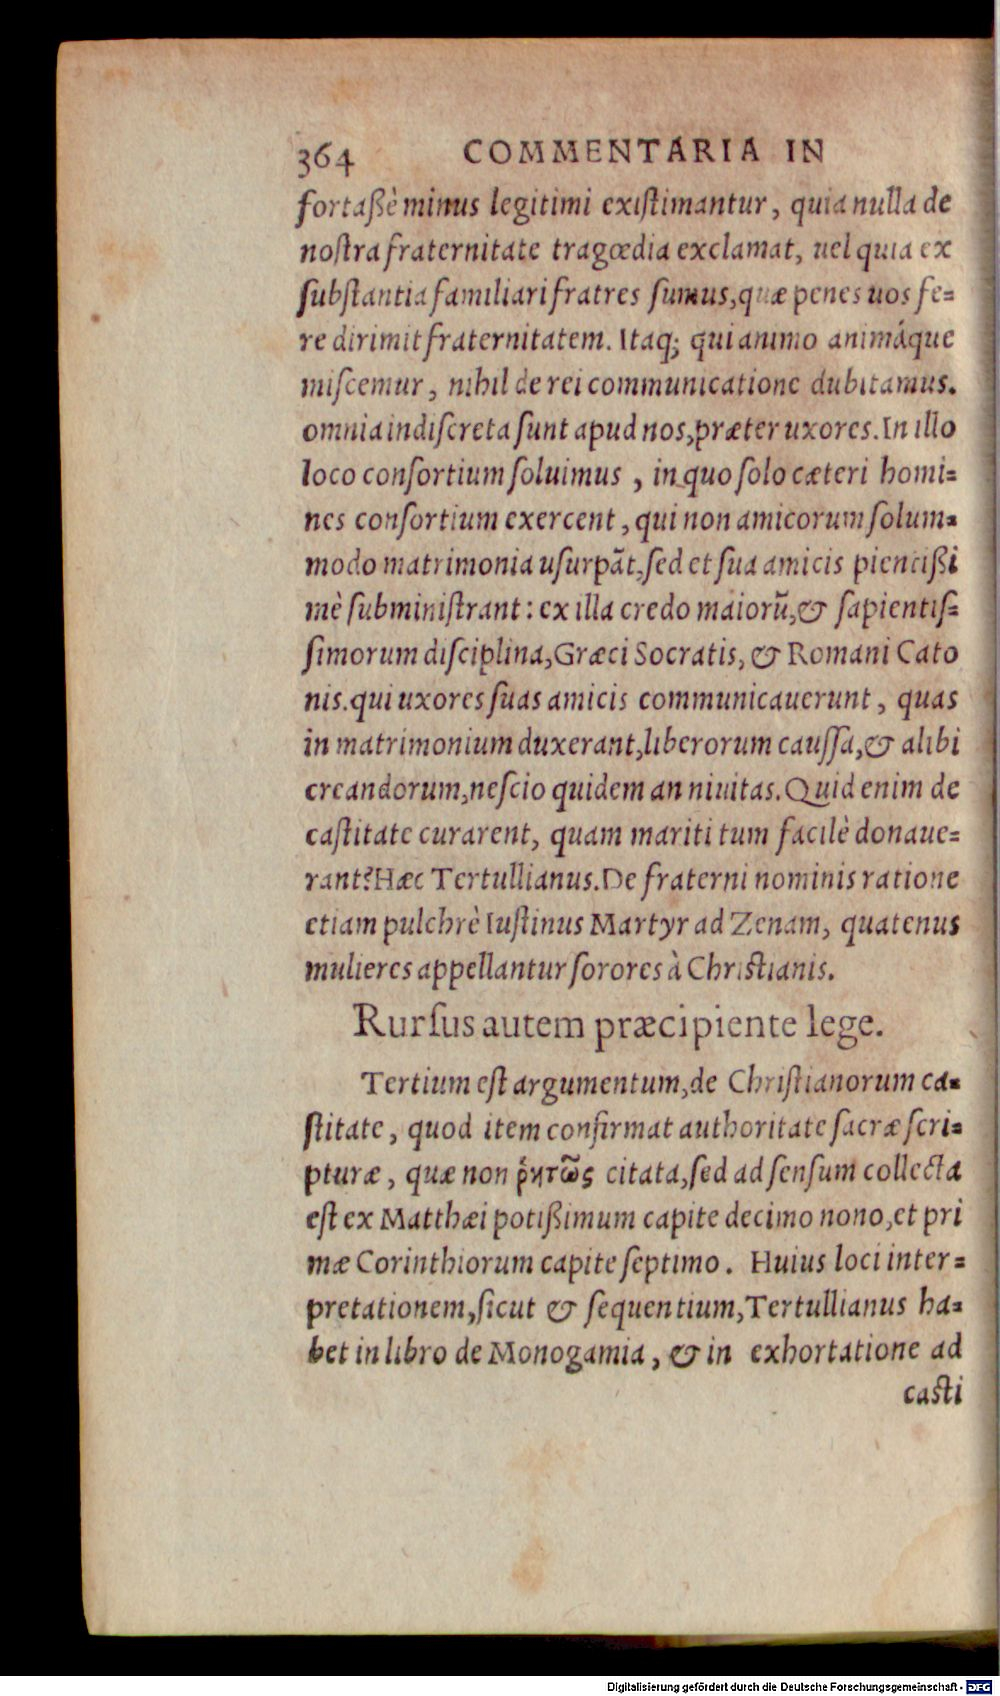 364 COMMENTARIA IN
fortaßè minus legitimi existimantur, quia nulla de
nostra fraternitate tragœdia exclamat, uel quia ex
substantia familiari fratres sumus, quæ penes uos fe=
re dirimit fraternitatem. Itaq; qui animo animáque
miscemur, nihil de rei communicatione dubitamus.
omnia indiscreta sunt apud nos, præter uxores. In illo
loco consortium soluimus, in quo solo cæteri homi=
nes consortium exercent, qui non amicorum solum=
modo matrimonia usurpãt, sed et sua amicis pientißi
mè subministrant: ex illa credo maiorũ, & sapientis=
simorum disciplina, Græci Socratis, & Romani Cato
nis. qui uxores suas amicis communicauerunt, quas
in matrimonium duxerant, liberorum caussa, & alibi
creandorum, nescio quidem an niuitas. Quid enim de
castitate curarent, quam mariti tum facilè donaue=
rant? Hæc Tertullianus. De fraterni nominis ratione
etiam pulchrè Iustinus Martyr ad Zenam, quatenus
mulieres appellantur sorores à Christianis.
Rursus autem præcipiente lege.
Tertium est argumentum, de Christianorum ca=
stitate, quod item confirmat authoritate sacræ scri=
pturæ, quæ non ῥητῶς citata, sed ad sensum collecta
est ex Matthæi potißimum capite decimo nono, et pri
mæ Corinthiorum capite septimo. Huius loci inter=
pretationem, sicut & sequentium, Tertullianus ha=
bet in libro de Monogamia, & in exhortatione ad
casti
Digitalisierung gefördert durch die Deutsche Forschungsgemeinschaft - DFG